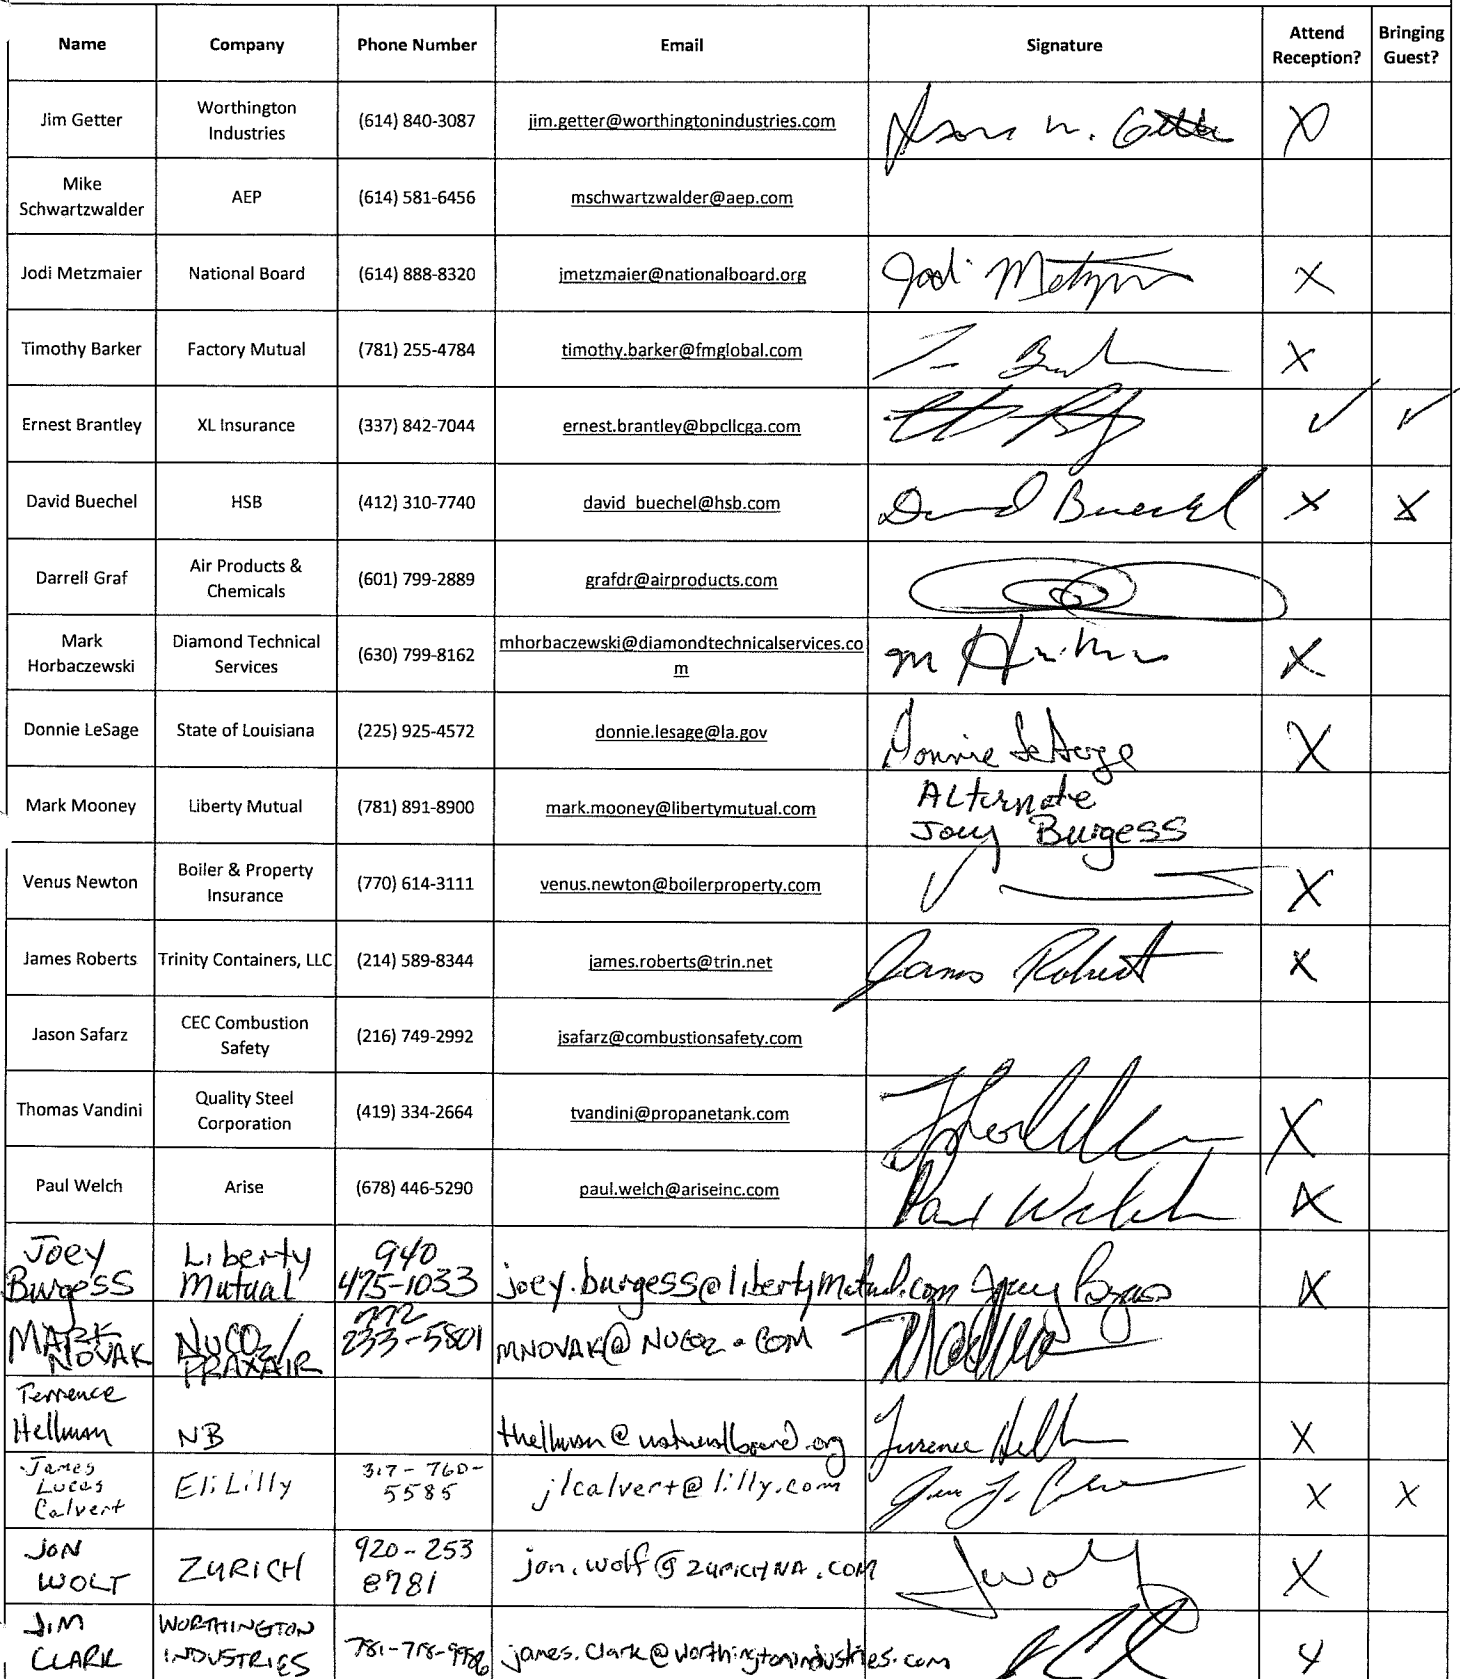 Name Company Phone Number Email Signature Attend Reception? Bringing Guest?
Jim Getter Worthington Industries (614) 840-3087 jim.getter@worthingtonindustries.com X
Mike Schwartzwalder AEP (614) 581-6456 mschwartzwalder@aep.com
Jodi Metzmaier National Board (614) 888-8320 jmetzmaier@nationalboard.org X
Timothy Barker Factory Mutual (781) 255-4784 timothy.barker@fmglobal.com X
Ernest Brantley XL Insurance (337) 842-7044 ernest.brantley@bpcllcga.com ✓ ✓
David Buechel HSB (412) 310-7740 david buechel@hsb.com David Buechel X X
Darrell Graf Air Products & Chemicals (601) 799-2889 grafdr@airproducts.com
Mark Horbaczewski Diamond Technical Services (630) 799-8162 mhorbaczewski@diamondtechnicalservices.com X
Donnie LeSage State of Louisiana (225) 925-4572 donnie.lesage@la.gov Donnie LeSage X
Mark Mooney Liberty Mutual (781) 891-8900 mark.mooney@libertymutual.com Alternate Joey Burgess
Venus Newton Boiler & Property Insurance (770) 614-3111 venus.newton@boilerproperty.com X
James Roberts Trinity Containers, LLC (214) 589-8344 james.roberts@trin.net James Roberts X
Jason Safarz CEC Combustion Safety (216) 749-2992 jsafarz@combustionsafety.com
Thomas Vandini Quality Steel Corporation (419) 334-2664 tvandini@propanetank.com X
Paul Welch Arise (678) 446-5290 paul.welch@ariseinc.com Paul Welch X
Joey Burgess Liberty Mutual 940 475-1033 joey.burgess@libertymutual.com Joey Burgess X
MARK NOVAK NUCO2/ PRAXAIR 772 233-5801 MNOVAK@NUCO2.COM
Terrence Hellman NB thellman@nationalboard.org Terrence Hellman X
James Lucas Calvert Eli Lilly 317-760-5585 jlcalvert@lilly.com X X
JON WOLF ZURICH 920-253 8781 jon.wolf@ZURICHNA.COM JWolf X
JIM CLARK WORTHINGTON INDUSTRIES james.clark@worthingtonindustries.com